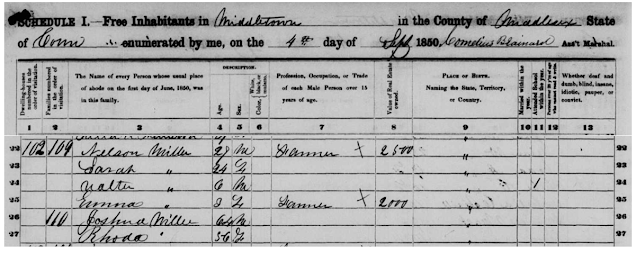 SCHEDULE I.—Free Inhabitants in Middletown in the County of Middlesex State
of Conn enumerated by me, on the 4th day of Sept 1850. Cornelius Brainard Ass't Marshal.
Dwelling-houses numbered in the order of visitation.
Families numbered in the order of visitation.
The Name of every Person whose usual place of abode on the first day of June, 1850, was in this family.
DESCRIPTION.
Age.
Sex.
Color, White, black, or mulatto.
Profession, Occupation, or Trade of each Male Person over 15 years of age.
Value of Real Estate owned.
PLACE OF BIRTH. Naming the State, Territory, or Country.
Married within the year.
Attended School within the year.
Whether deaf and dumb, blind, insane, idiotic, pauper, or convict.
1 2 3 4 5 6 7 8 9 10 11 12 13
22 102 109 Nelson Miller 28 M Farmer X 2500 " 22
23 Sarah " 24 F " 23
24 Walter " 6 M " 1 24
25 Emma " 3 F Farmer X 2000 " 25
26 110 Joshua Miller 64 M " 26
27 Rhoda " 56 F " 27